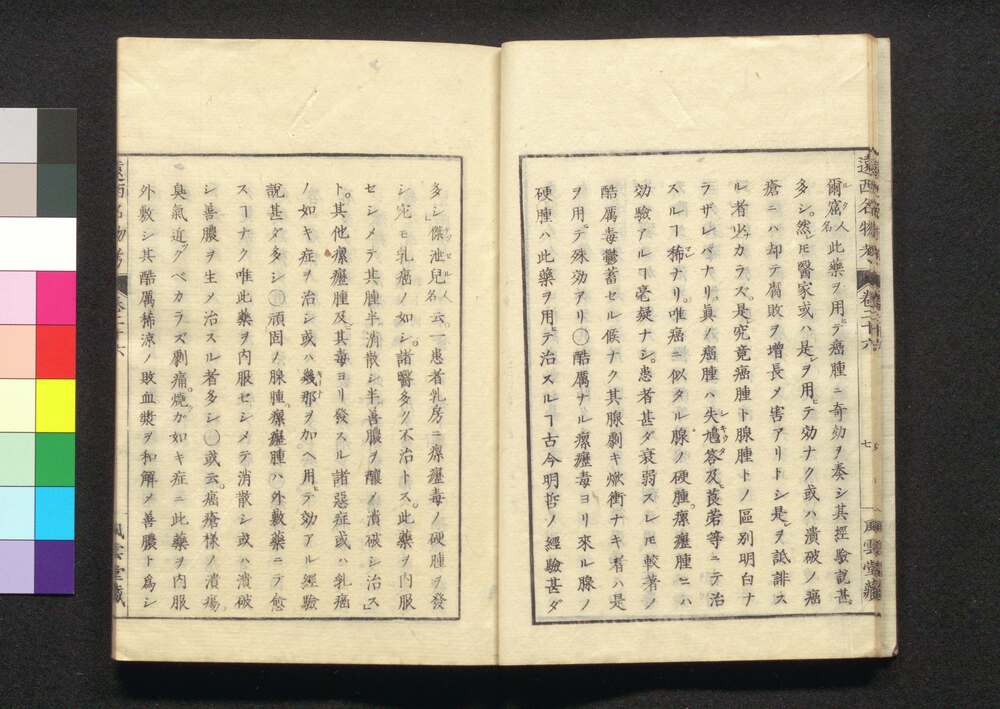 爾窊人名此藥ヲ用テ癌腫ニ奇効ヲ奏シ其經驗説甚
多シ然𪜈醫家或ハ是ヲ用テ効ナク或ハ潰破ノ癌
瘡ニハ却テ腐敗ヲ增長メ害アリトシ是ヲ詆誹ス
ル者少カラズ是究竟癌腫ト腺腫トノ區別明白ナ
ラザレバナリ眞ノ癌腫ハ失鳩答及莨菪等ニテ治
スルヿ稀ナリ唯癌ニ似タル腺ノ硬腫瘰癧腫ニハ
効驗アルヿ毫疑ナシ患者甚ダ衰弱スレ𪜈較著ノ
酷厲毒鬱蓄セル候ナク其腺剥キ焮衝ナキ者ハ是
ヲ用テ殊効アリ○酷厲ナル瘰癧毒ヨリ來ル腺ノ
硬腫ハ此藥ヲ用テ治スルヿ古今明哲ノ經驗甚ダ
遠西名物考 卷二十六
七
風雲堂藏
多シ傑泄兒人名云一患者乳房ニ瘰癧毒ノ硬腫ヲ發
シ宛モ乳癌ノ如シ諸醫多ク不治トス此藥ヲ内服
セシメテ其腫半消散シ半善膿ヲ釀ノ潰破シ治ス
ト其他瘰癧腫及其毒ヨリ發スル諸惡症或ハ乳癌
ノ如キ症ヲ治シ或ハ幾那ヲ加ヘ用テ効アル經驗
説甚ダ多シ○頑固ノ腺腫瘰癧腫ハ外敷藥ニテ愈
スヿナク唯此藥ヲ内服セシメテ消散シ或ハ潰破
シ善膿ヲ生メ治スル者多シ○或云癌瘡樣ノ潰瘍
臭氣近ヅクベカラズ剥痛燒ガ如キ症ニ此藥ヲ内服
外敷シ其酷厲稀涼ノ敗血漿ヲ和解メ善膿ト爲シ
遠西名物考 卷二十六
風雲堂藏